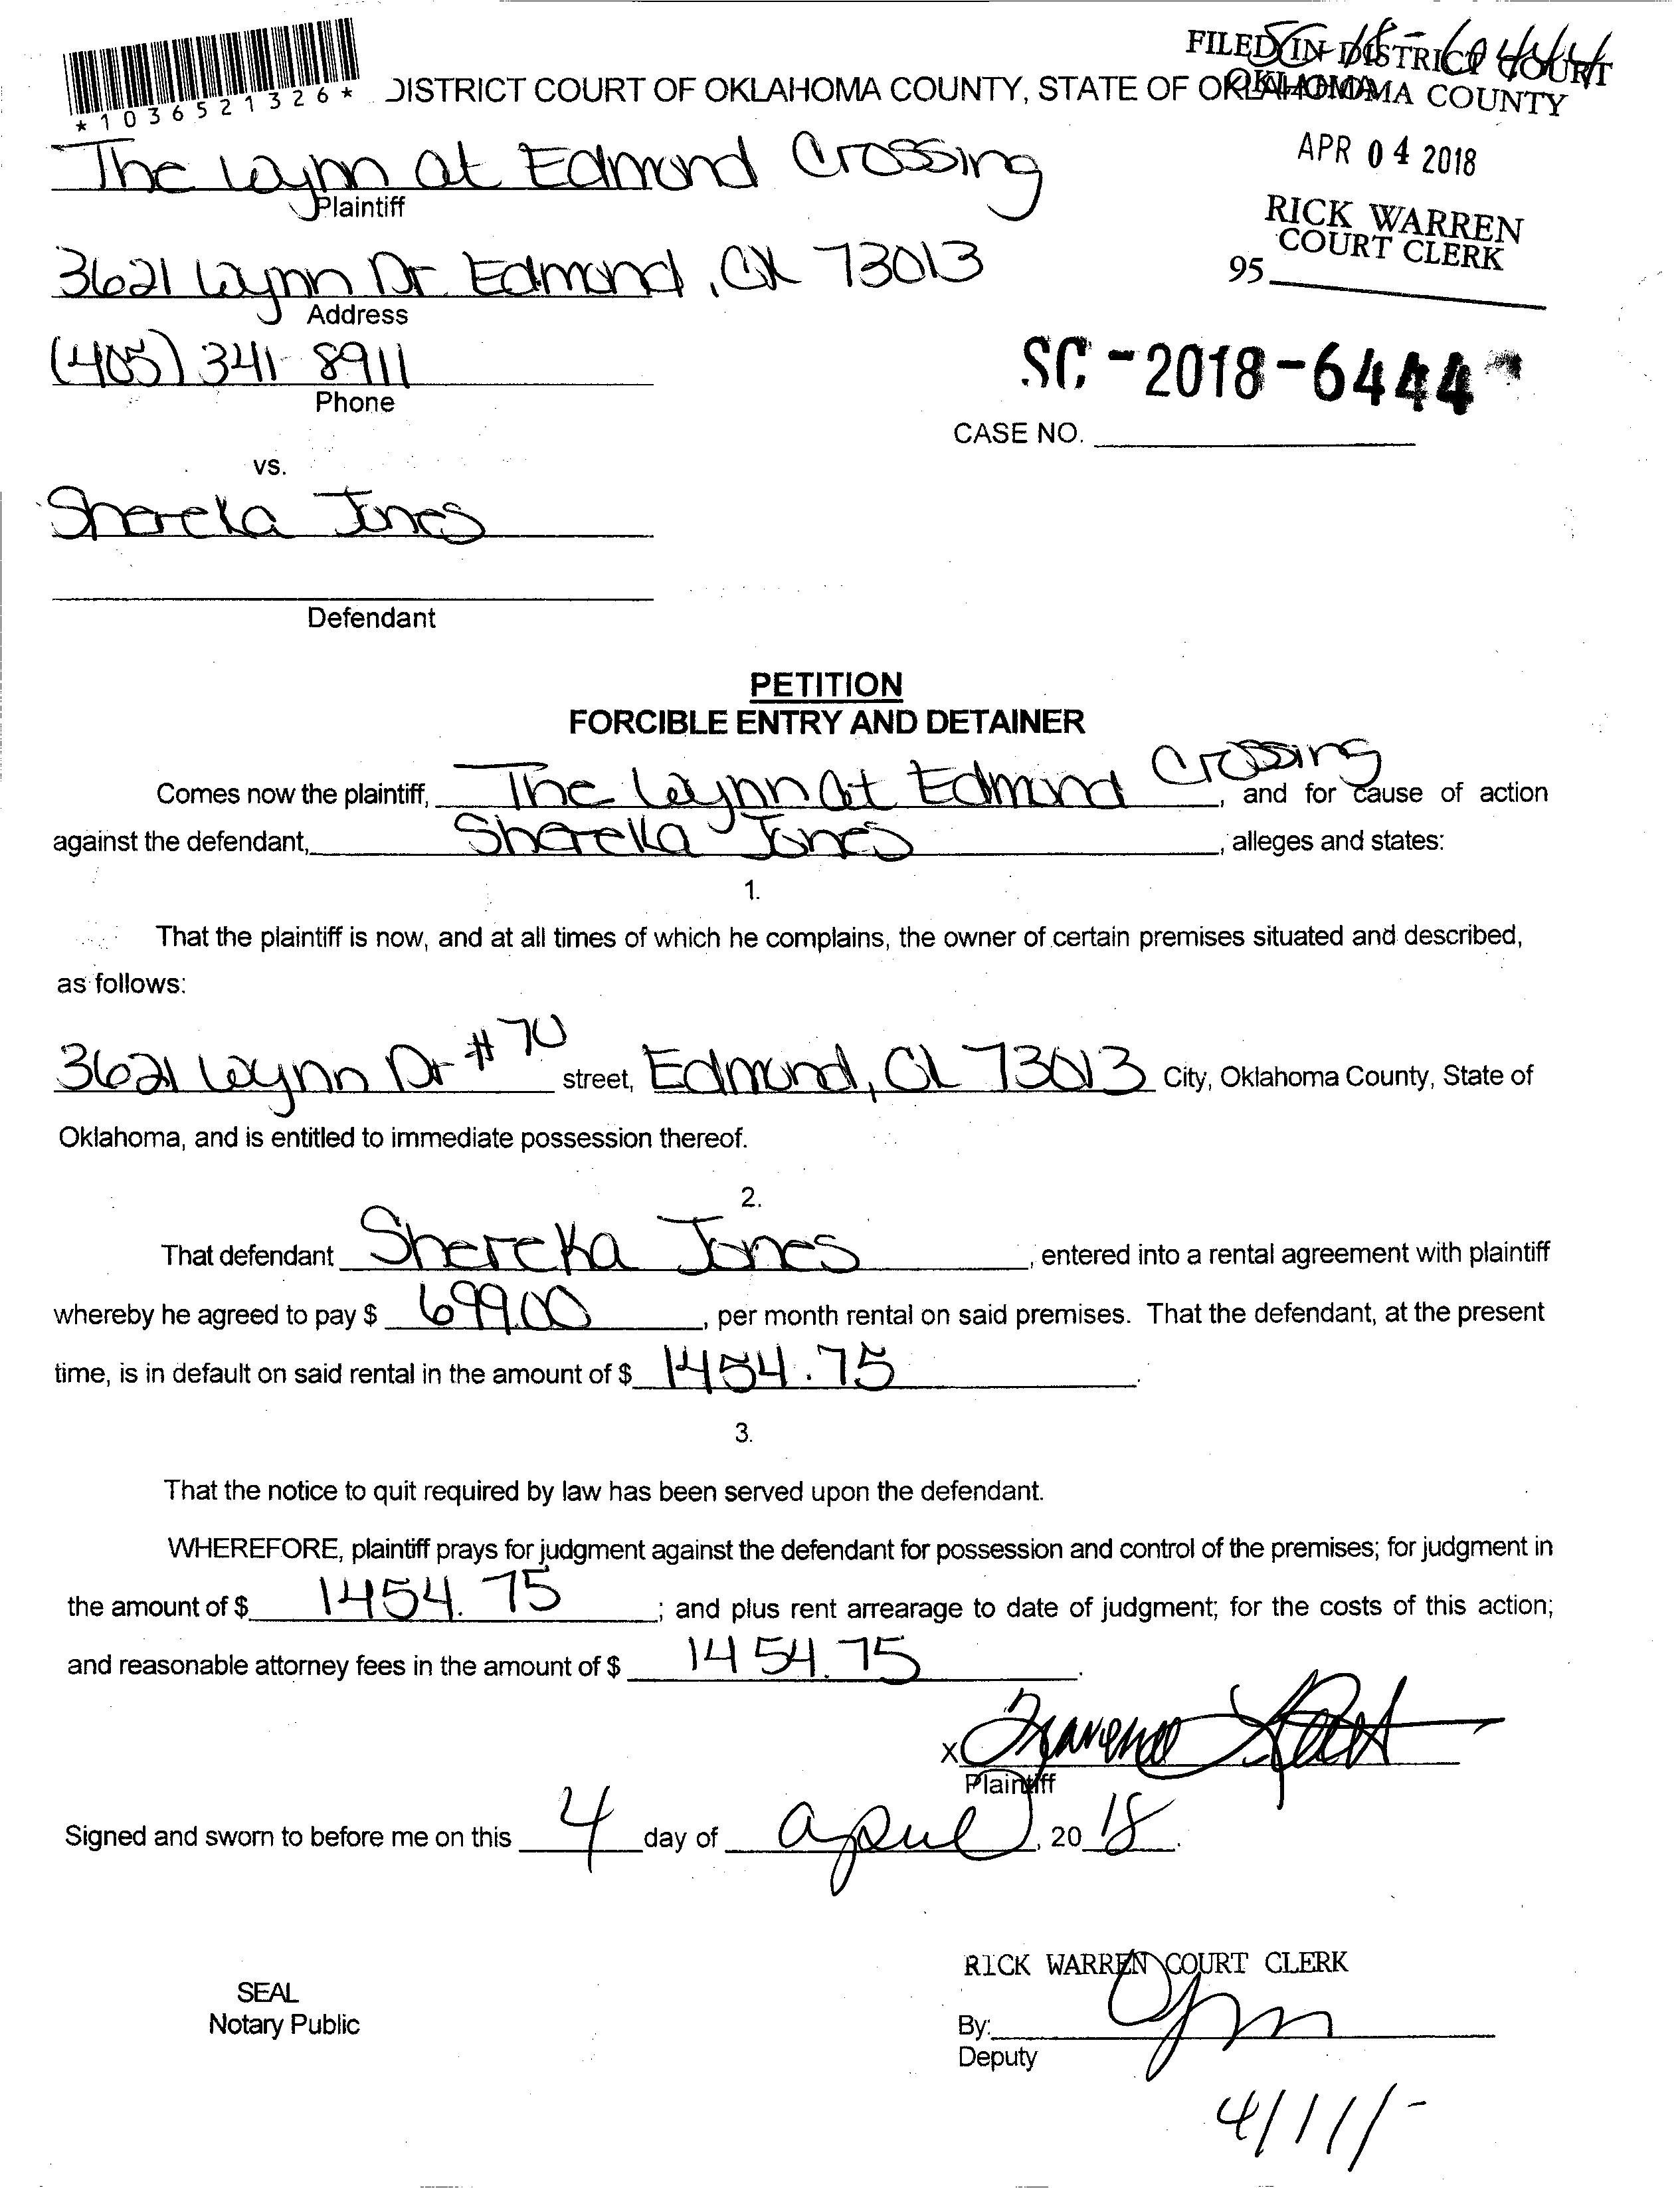 SC-18-6444
FILED IN DISTRICT COURT
OKLAHOMA COUNTY
*1036521326*
DISTRICT COURT OF OKLAHOMA COUNTY, STATE OF OKLAHOMA
APR 04 2018
The Wynn at Edmond Crossing
Plaintiff
RICK WARREN
COURT CLERK
95
3621 Wynn Dr Edmond, OK 73013
Address
(405) 341-8911
Phone
SC-2018-6444
CASE NO.
vs.
Shereka Jones
Defendant
PETITION
FORCIBLE ENTRY AND DETAINER
Comes now the plaintiff, The Wynn at Edmond Crossing, and for cause of action
against the defendant, Shereka Jones, alleges and states:
1.
That the plaintiff is now, and at all times of which he complains, the owner of certain premises situated and described,
as follows:
3621 Wynn Dr #70 street, Edmond, OK 73013 City, Oklahoma County, State of
Oklahoma, and is entitled to immediate possession thereof.
2.
That defendant Shereka Jones, entered into a rental agreement with plaintiff
whereby he agreed to pay $ 699.00, per month rental on said premises. That the defendant, at the present
time, is in default on said rental in the amount of $ 1454.75.
3.
That the notice to quit required by law has been served upon the defendant.
WHEREFORE, plaintiff prays for judgment against the defendant for possession and control of the premises; for judgment in
the amount of $ 1454.75; and plus rent arrearage to date of judgment; for the costs of this action;
and reasonable attorney fees in the amount of $ 1454.75.
X
Plaintiff
Signed and sworn to before me on this 4 day of April, 2018.
RICK WARREN COURT CLERK
SEAL
Notary Public
By:
Deputy